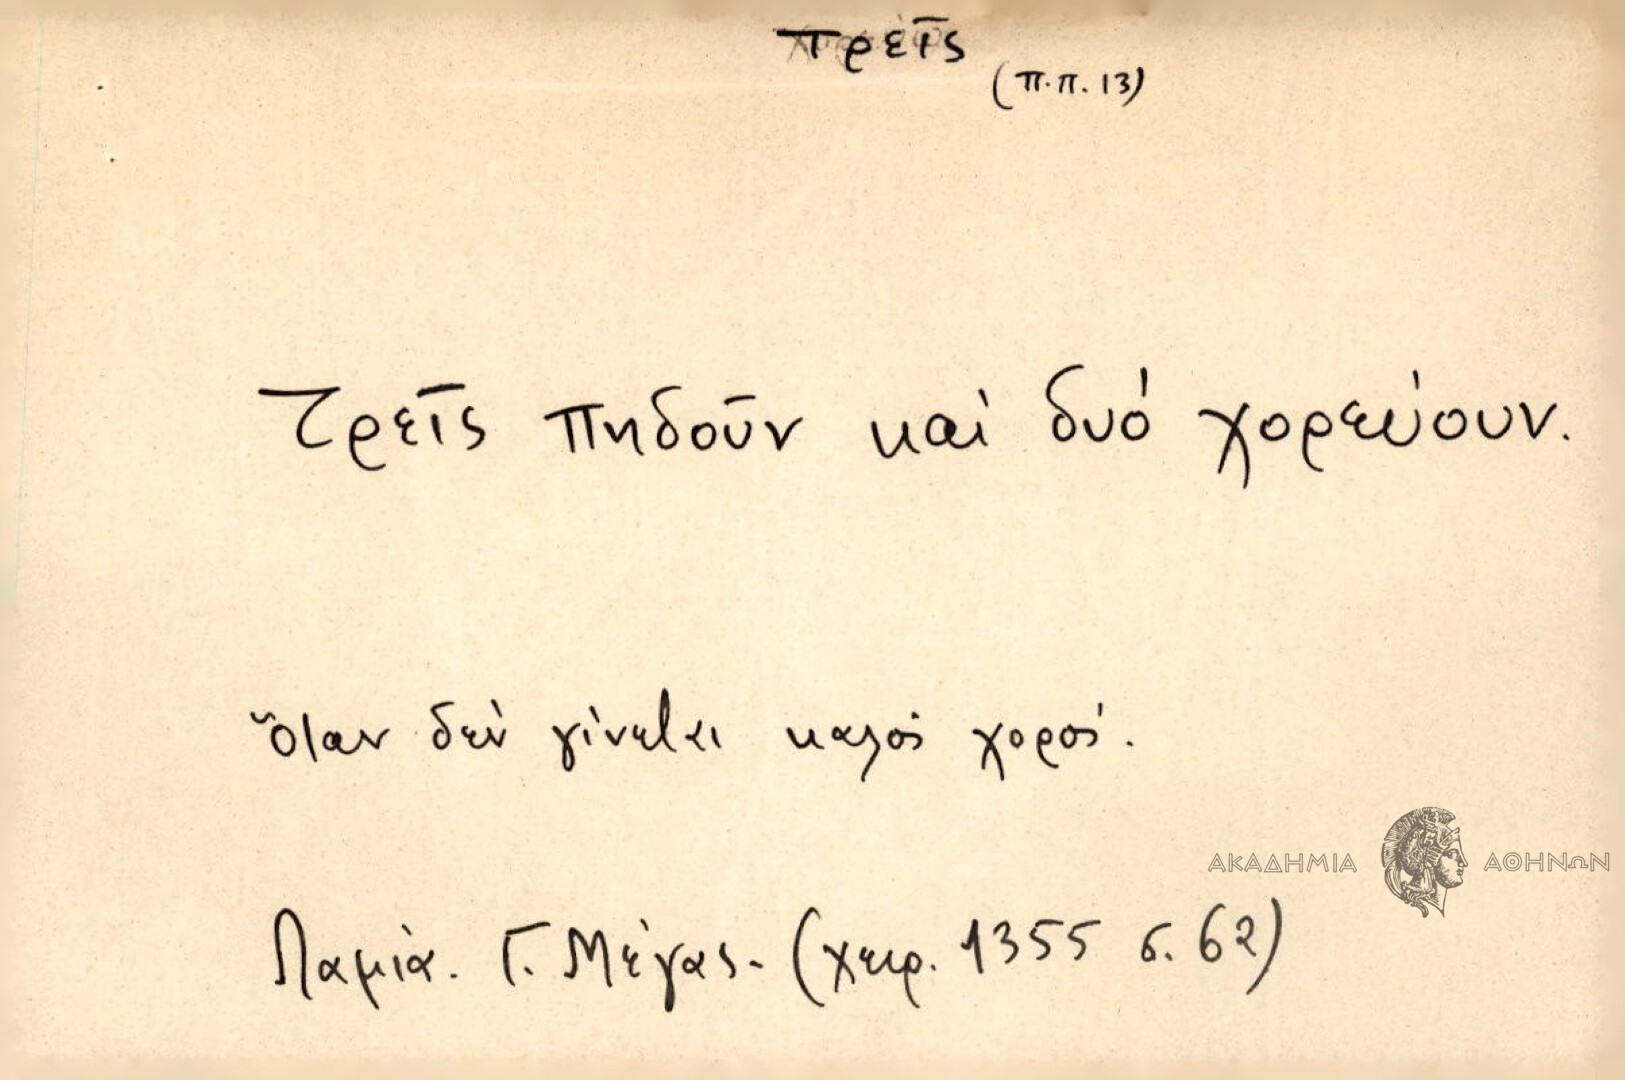 τρεῖς
(π.π. 13)
Τρεῖς πηδοῦν καὶ δυό χορεύουν.
Ὅταν δέν γίνεται καλός χορός.
ΑΚΑΔΗΜΙΑ ΑΘΗΝΩΝ
Λαμία. Γ. Μέγας. (χειρ. 1355 σ. 62)